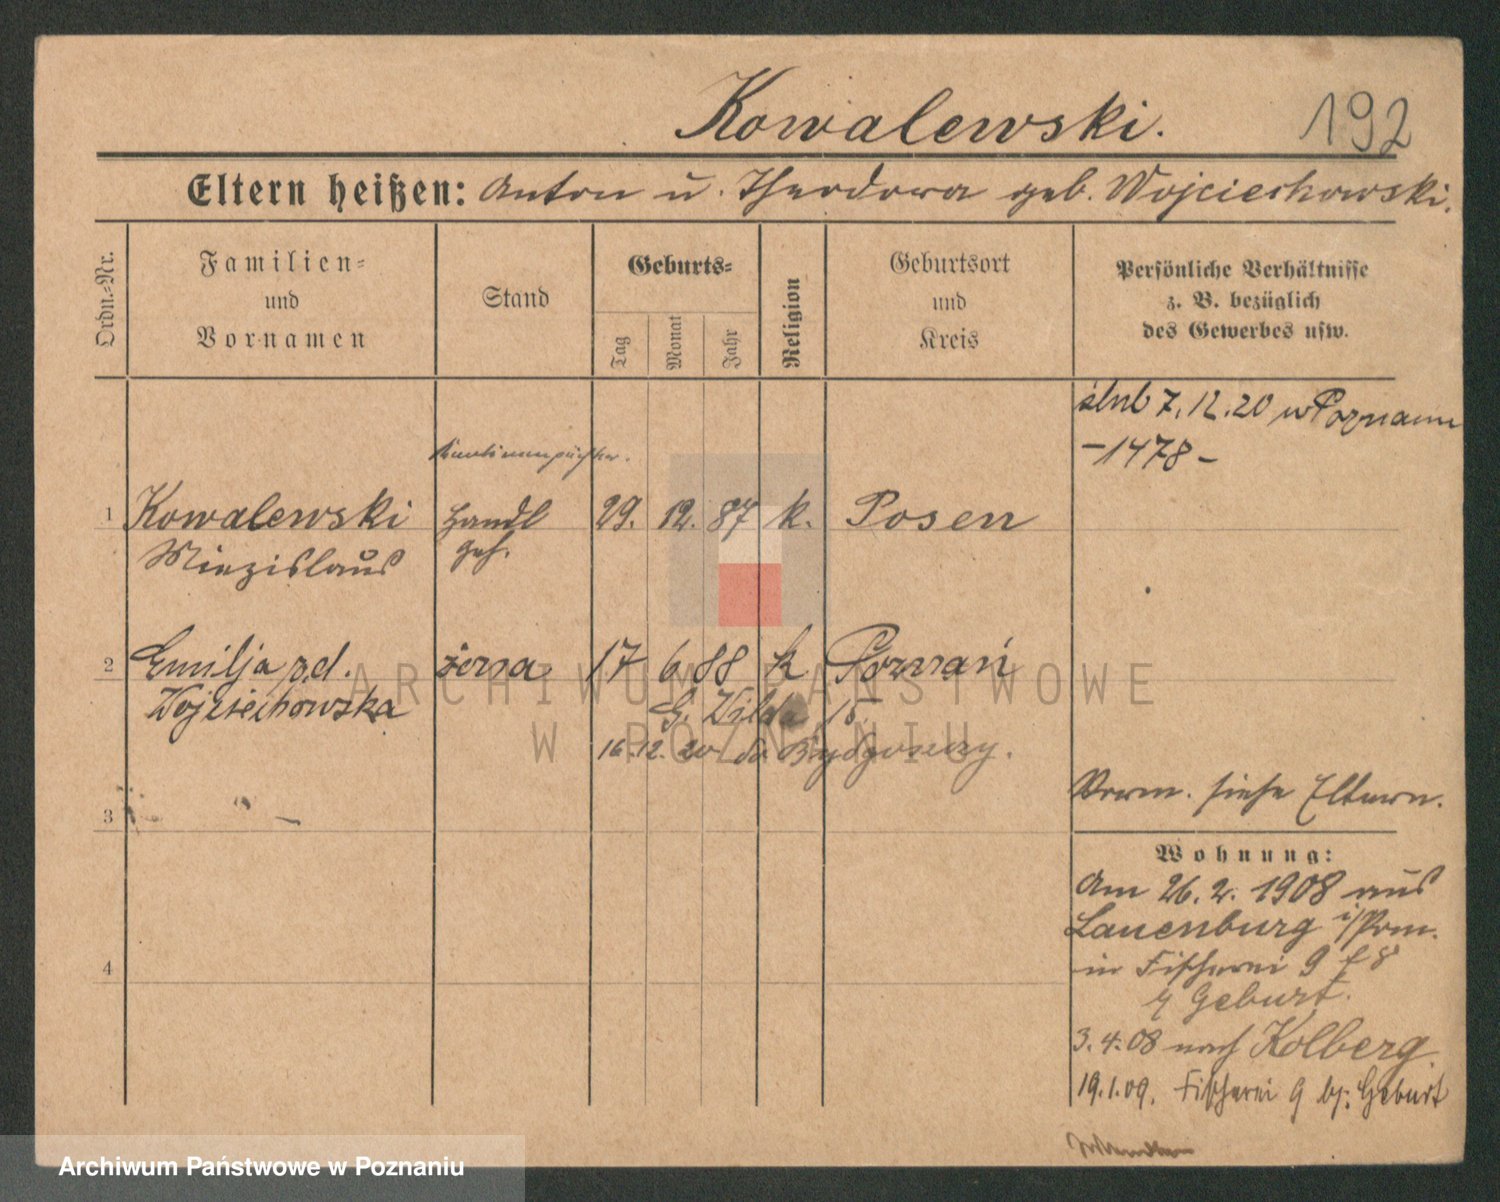 Kowalewski.
192
Eltern heißen: Anton u. Theodora geb. Wojciechowski.
Ordn.-Nr.
Familien-
und
Vornamen
Stand
Geburts-
Tag
Monat
Jahr
Religion
Geburtsort
und
Kreis
Persönliche Verhältnisse
z. B. bezüglich
des Gewerbes usw.
ślub 7.12.20 w Poznaniu
-1478-
1 Kowalewski Handl 29. 12. 87 k. Posen
Miezislaus geh.
2 Emilja z d. żona 17 6 88 k Poznań
Wojciechowska
G. Wilda 15
16.12.20 do Bydgoszczy.
3
Verm. siehe Eltern.
Wohnung:
Am 26.2.1908 aus
Lauenburg i/Pom.
in Fischerei 9
Geburt.
4
3.4.08 nach Kolberg.
19.1.09. Fischerei 9 bj. Geburt
ARCHIWUM PAŃSTWOWE
W POZNANIU
Archiwum Państwowe w Poznaniu